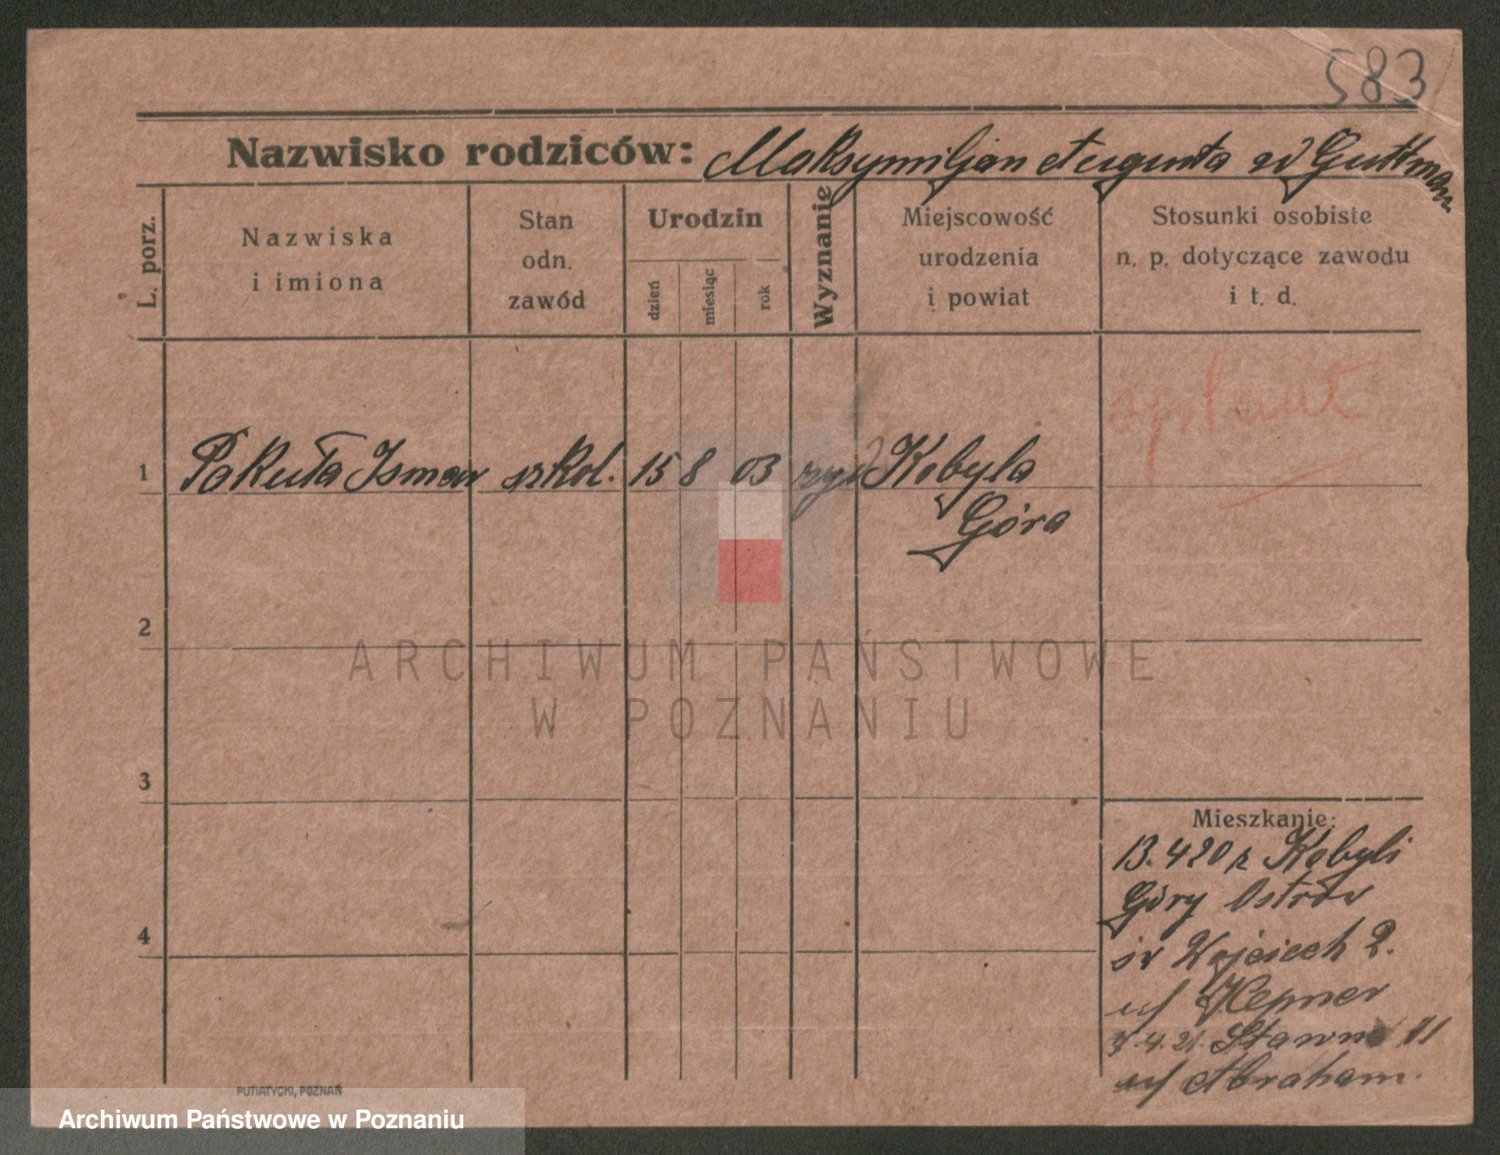 583
Nazwisko rodziców: Maksymiljan Augusta zd Guttman.
L. porz.
Nazwiska
i imiona
Stan
odn.
zawód
Urodzin
dzień
miesiąc
rok
Wyznanie
Miejscowość
urodzenia
i powiat
Stosunki osobiste
n. p. dotyczące zawodu
i t. d.
1 Pakuła Ismar szkol. 15 8 03 żyd Kobyla
Góra
2
ARCHIWUM PAŃSTWOWE
W POZNANIU
3
Mieszkanie:
13. 4 20 z Kobyli
Góry Ostrów
św Wojciech 2.
4
u/ Hepner
7. 4. 21. Stawna 11
u/ Abraham.
PUTIATYCKI, POZNAŃ
Archiwum Państwowe w Poznaniu